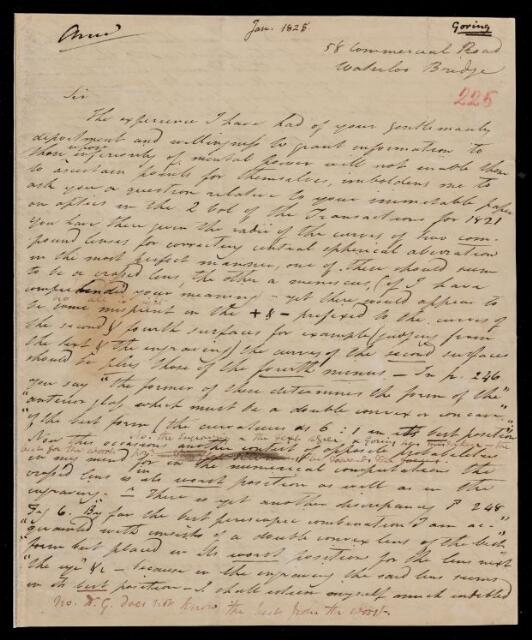 Answd
Jan. 1825
Goring
58 Commercial Road
Waterloo Bridge
225
Sir
The experience I have had of your gentlemanly
deportment and willingness to grant information to
those whose inferiority of mental power will not enable them
to ascertain points for themselves, imboldens me to
ask you a question relative to your inimitable paper
on optics in the 2 vol of the Transactions for 1821
You have there given the radii of the curves of two com-
pound lenses for correcting central spherical aberration
in the most perfect manner, one of these should seem
to be a crossed lens, the other a meniscus, (if I have
comprehended your meaning) - yet there would appear to
be some misprint in the + & - prefixed to the curves of
the second & fourth surfaces for example (judging from
the text & the engraving) the curves of the second surfaces
should be plus those of the fourth minus - In p. 246
you say "the former of these determines the form of the
"anterior glass which must be a double convex or concave
"of the best form (the curvatures as 6 : 1 in its best position
Now this occasions
in my mind for in the numerical computations the
crossed lens is in its worst position as well as in the
engraving. - There is yet another discrepancy P 248
Fig 6. "By far the best periscopic combination I am ac-
"quainted with consists of a double convex lens of the best
"form but placed in its worst position for the lens next
"the eye &c - because in the engraving the said lens seems
in its best position - I shall esteem myself much indebted
No. Dr. G. does not know the best from the worst.